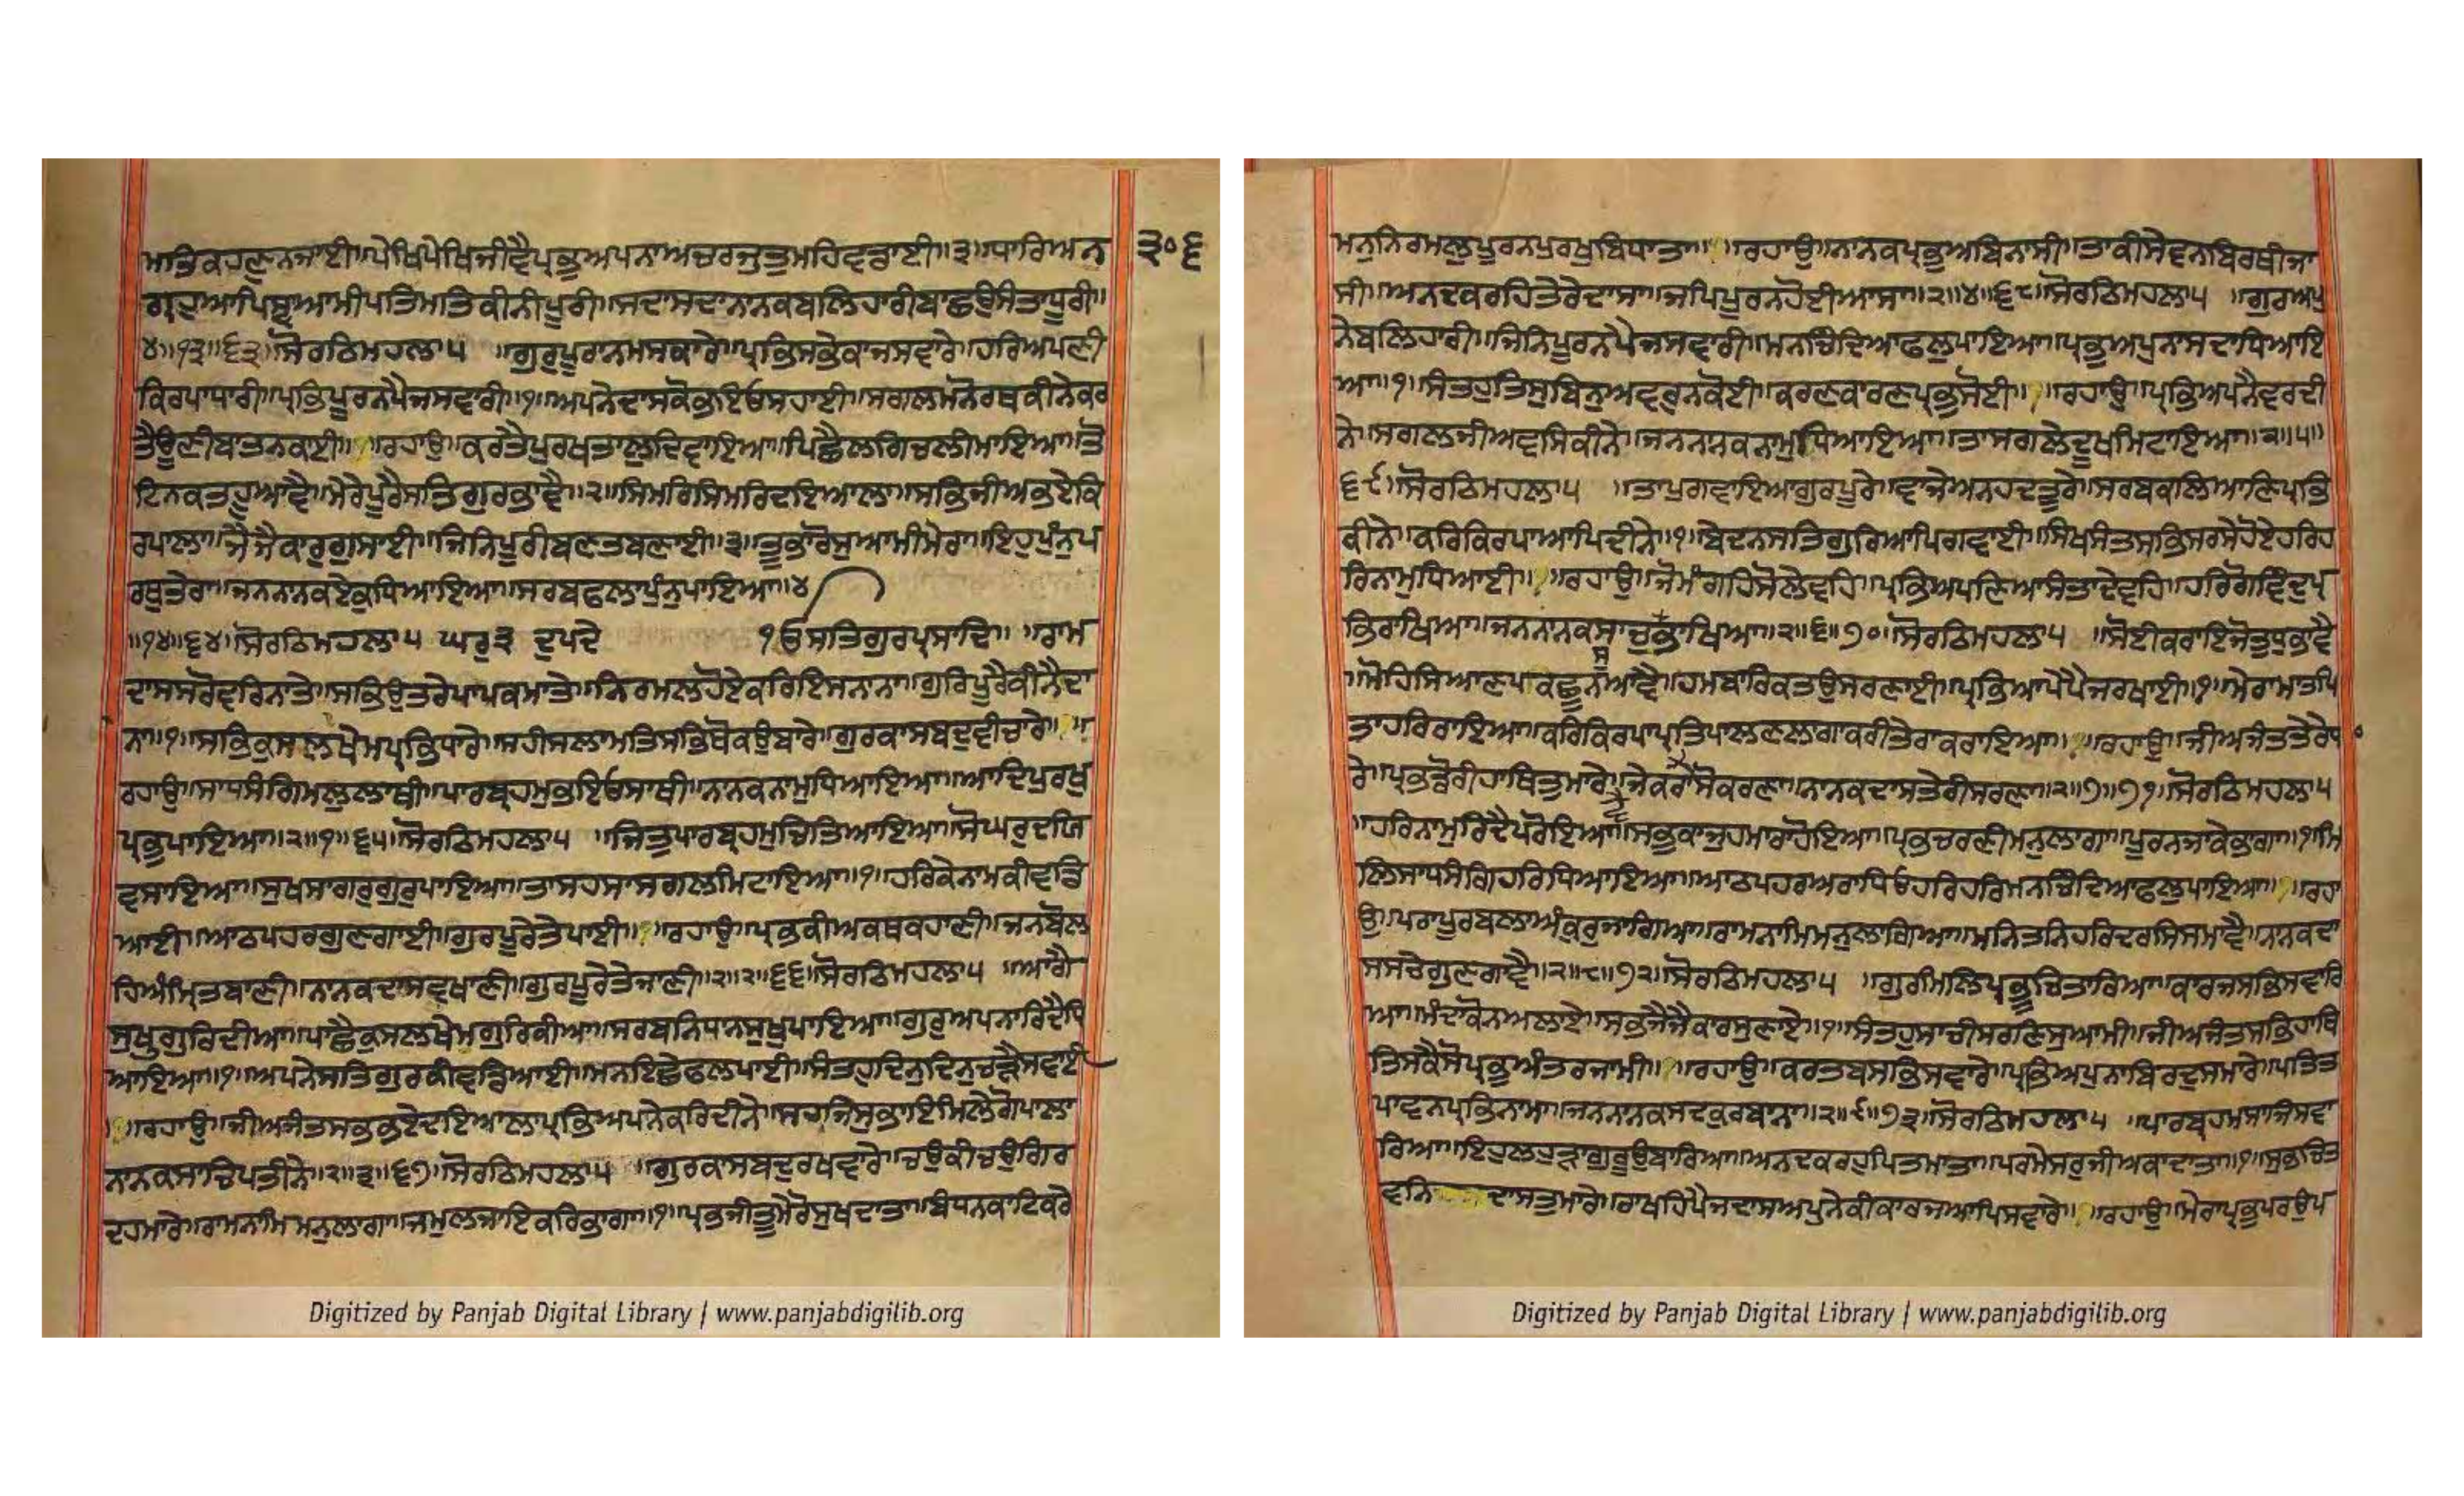 ਮਾਤਿਕਹਣੁਨਜਾਈ॥ਪੇਖਿਪੇਖਿਜੀਵੈਪ੍ਰਭੁਅਪਨਾਅਚਰਜੁਤੁਮਹਿਵਡਾਈ॥੩॥ਧਾਰਿਅਨੁ
੩੦੬
ਗ੍ਰਹੁਆਪਿਸੁਆਮੀਪਤਿਮਤਿਕੀਨੀਪੂਰੀ॥ਸਦਾਸਦਾਨਾਨਕਬਲਿਹਾਰੀਬਾਛਉਸੰਤਾਧੂਰੀ॥
੪॥੧੩॥੬੩॥ਸੋਰਠਿਮਹਲਾ੫ ॥ਗੁਰੁਪੂਰਾਨਮਸਕਾਰੇ॥ਪ੍ਰਭਿਸਭੇਕਾਜਸਵਾਰੇ॥ਹਰਿਅਪਣੀ
ਕਿਰਪਾਧਾਰੀ॥ਪ੍ਰਭਿਪੂਰਨਪੈਜਸਵਾਰੀ॥੧॥ਅਪਨੇਦਾਸਕੋਭਇਓਸਹਾਈ॥ਸਗਲਮਨੋਰਥਕੀਨੇਕਰ
ਤੈਊਣੀਬਾਤਨਕਾਈ॥ ॥ਰਹਾਉ॥ਕਰਤੈਪੁਰਖਤਾਲੁਦਿਵਾਇਆ॥ਪਿਛੈਲਗਿਚਲੀਮਾਇਆ॥ਤੋ
ਟਿਨਕਤਹੂਆਵੈ॥ਮੇਰੇਪੂਰੈਸਤਿਗੁਰਭਾਵੈ॥੨॥ਸਿਮਰਿਸਿਮਰਿਦਇਆਲਾ॥ਸਭਿਜੀਅਭਏਕਿ
ਰਪਾਲਾ॥ਜੈਜੈਕਾਰੁਗੁਸਾਈ॥ਜਿਨਿਪੂਰੀਬਣਤਬਣਾਈ॥੩॥ਤੂਭਾਰੋਸੁਆਮੀਮੋਰਾ॥ਇਹੁਪੁੰਨੁਪ
ਰਥੁਤੇਰਾ॥ਜਨਨਾਨਕਏਕੁਧਿਆਇਆ॥ਸਰਬਫਲਾਪੁੰਨੁਪਾਇਆ॥੪
॥੧੪॥੬੪॥ਸੋਰਠਿਮਹਲਾ੫ ਘਰੁ੩ ਦੁਪਦੇ ੴਸਤਿਗੁਰਪ੍ਰਸਾਦਿ॥ ॥ਰਾਮ
ਦਾਸਸਰੋਵਰਿਨਾਤੇ॥ਸਭਿਉਤਰੇਪਾਪਕਮਾਤੇ॥ਨਿਰਮਲਹੋਏਕਰਿਇਸਨਾਨਾ॥ਗੁਰਿਪੂਰੈਕੀਨੈਦਾ
ਨਾ॥੧॥ਸਭਿਕੁਸਲਖੇਮਪ੍ਰਭਿਧਾਰੇ॥ਸਹੀਸਲਾਮਤਿਸਭਿਥੋਕਉਬਾਰੇ॥ਗੁਰਕਾਸਬਦੁਵੀਚਾਰੇ॥ ॥
ਰਹਾਉ॥ਸਾਧਸੰਗਿਮਲੁਲਾਥੀ॥ਪਾਰਬ੍ਰਹਮੁਭਇਓਸਾਥੀ॥ਨਾਨਕਨਾਮੁਧਿਆਇਆ॥ਆਦਿਪੁਰਖੁ
ਪ੍ਰਭੁਪਾਇਆ॥੨॥੧॥੬੫॥ਸੋਰਠਿਮਹਲਾ੫ ॥ਜਿਤੁਪਾਰਬ੍ਰਹਮੁਚਿਤਿਆਇਆ॥ਸੋਘਰੁਦਯਿ
ਵਸਾਇਆ॥ਸੁਖਸਾਗਰੁਗੁਰੁਪਾਇਆ॥ਤਾਸਹਸਾਸਗਲਮਿਟਾਇਆ॥੧॥ਹਰਿਕੇਨਾਮਕੀਵਡਿ
ਆਈ॥ਆਠਪਹਰਗੁਣਗਾਈ॥ਗੁਰਪੂਰੇਤੇਪਾਈ॥ ॥ਰਹਾਉ॥ਪ੍ਰਭਕੀਅਕਥਕਹਾਣੀ॥ਜਨਬੋਲ
ਹਿਅੰਮ੍ਰਿਤਬਾਣੀ॥ਨਾਨਕਦਾਸਵਖਾਣੀ॥ਗੁਰਪੂਰੇਤੇਜਾਣੀ॥੨॥੨॥੬੬॥ਸੋਰਠਿਮਹਲਾ੫ ॥ਆਗੈ
ਸੁਖੁਗੁਰਿਦੀਆ॥ਪਾਛੈਕੁਸਲਖੇਮਗੁਰਿਕੀਆ॥ਸਰਬਨਿਧਾਨਸੁਖਪਾਇਆ॥ਗੁਰੁਅਪਨਾਰਿਦੈਧਿ
ਆਇਆ॥੧॥ਅਪਨੇਸਤਿਗੁਰਕੀਵਡਿਆਈ॥ਮਨਇਛੇਫਲਪਾਈ॥ਸੰਤਹੁਦਿਨੁਦਿਨੁਚੜੈਸਵਾਈ
॥ ॥ਰਹਾਉ॥ਜੀਅਜੰਤਸਭਭਏਦਇਆਲਾਪ੍ਰਭਿਅਪਨੇਕਰਿਦੀਨੇ॥ਸਹਜਿਸੁਭਾਇਮਿਲੇਗੋਪਾਲਾ
ਨਾਨਕਸਾਚਿਪਤੀਨੇ॥੨॥੩॥੬੭॥ਸੋਰਠਿਮਹਲਾ੫ ॥ਗੁਰਕਾਸਬਦੁਰਖਵਾਰੇ॥ਚਉਕੀਚਉਗਿਰ
ਦਹਮਾਰੇ॥ਰਾਮਨਾਮਿਮਨੁਲਾਗਾ॥ਜਮੁਲਜਾਇਕਰਿਭਾਗਾ॥੧॥ਪ੍ਰਭਜੀਤੂਮੇਰੋਸੁਖਦਾਤਾ॥ਬੰਧਨਕਾਟਿਕਰੇ
Digitized by Panjab Digital Library | www.panjabdigilib.org
ਮਨੁਨਿਰਮਲੁਪੂਰਨਪੁਰਖੁਬਿਧਾਤਾ॥ ॥ਰਹਾਉ॥ਨਾਨਕਪ੍ਰਭੁਅਬਿਨਾਸੀ॥ਤਾਕੀਸੇਵਨਬਿਰਥੀਜਾ
ਸੀ॥ਅਨਦਕਰਹਿਤੇਰੇਦਾਸਾ॥ਜਪਿਪੂਰਨਹੋਈਆਸਾ॥੨॥੪॥੬੮॥ਸੋਰਠਿਮਹਲਾ੫ ॥ਗੁਰਅਪੁ
ਨੇਬਲਿਹਾਰੀ॥ਜਿਨਿਪੂਰਨਪੈਜਸਵਾਰੀ॥ਮਨਚਿੰਦਿਆਫਲੁਪਾਇਆ॥ਪ੍ਰਭੁਅਪੁਨਾਸਦਾਧਿਆਇ
ਆ॥੧॥ਸੰਤਹੁਤਿਸੁਬਿਨੁਅਵਰੁਨਕੋਈ॥ਕਰਣਕਾਰਣਪ੍ਰਭੁਸੋਈ॥ ॥ਰਹਾਉ॥ਪ੍ਰਭਿਅਪਨੈਵਰਦੀ
ਨੇ॥ਸਗਲਜੀਅਵਸਿਕੀਨੇ॥ਜਨਨਾਨਕਨਾਮੁਧਿਆਇਆ॥ਤਾਸਗਲੇਦੂਖਮਿਟਾਇਆ॥੨॥੫॥
੬੯॥ਸੋਰਠਿਮਹਲਾ੫ ॥ਤਾਪੁਗਵਾਇਆਗੁਰਪੂਰੇ॥ਵਾਜੇਅਨਹਦਤੂਰੇ॥ਸਰਬਕਲਿਆਣਿਪ੍ਰਭਿ
ਕੀਨੇ॥ਕਰਿਕਿਰਪਾਆਪਿਦੀਨੇ॥੧॥ਬੇਦਨਸਤਿਗੁਰਿਆਪਿਗਵਾਈ॥ਸਿਖਸੰਤਸਭਿਸਰਸੇਹੋਏਹਰਿਹ
ਰਿਨਾਮੁਧਿਆਈ॥ ॥ਰਹਾਉ॥ਜੋਮੰਗਹਿਸੋਲੇਵਹਿ॥ਪ੍ਰਭਿਅਪਣਿਆਸੰਤਾਦੇਵਹਿ॥ਹਰਿਗੋਵਿੰਦੁਪ੍ਰ
ਭਿਰਾਖਿਆ॥ਜਨਨਾਨਕਸਾਚੁਭਾਖਿਆ॥੨॥੬॥੭੦॥ਸੋਰਠਿਮਹਲਾ੫ ॥ਸੋਈਕਰਾਇਜੋਤੁਧੁਭਾਵੈ
॥ਮੋਹਿਸਿਆਣਪਕਛੂਨਆਵੈ॥ਹਮਬਾਰਿਕਤਉਸਰਣਾਈ॥ਪ੍ਰਭਿਆਪੇਪੈਜਰਖਾਈ॥੧॥ਮੇਰਾਮਾਤਪਿ
ਤਾਹਰਿਰਾਇਆ॥ਕਰਿਕਿਰਪਾਪ੍ਰਤਿਪਾਲਣਲਾਗਾਕਰੀਤੇਰਾਕਰਾਇਆ॥ ॥ਰਹਾਉ॥ਜੀਅਜੰਤਤੇਰੇਧਾ
ਰੇ॥ਪ੍ਰਭਡੋਰੀਹਾਥਿਤੁਮਾਰੇ॥ਜੇਕਰਾਸੋਕਰਣਾ॥ਨਾਨਕਦਾਸਤੇਰੀਸਰਣਾ॥੨॥੭॥੭੧॥ਸੋਰਠਿਮਹਲਾ੫
॥ਹਰਿਨਾਮੁਰਿਦੈਪਰੋਇਆ॥ਸਭੁਕਾਜੁਹਮਾਰਾਹੋਇਆ॥ਪ੍ਰਭਚਰਣੀਮਨੁਲਾਗਾ॥ਪੂਰਨਜਾਕੇਭਾਗਾ॥੧॥ਮਿ
ਲਿਸਾਧਸੰਗਿਹਰਿਧਿਆਇਆ॥ਆਠਪਹਰਅਰਾਧਿਓਹਰਿਹਰਿਮਨਚਿੰਦਿਆਫਲੁਪਾਇਆ॥ ॥ਰਹਾ
ਉ॥ਪਰਾਪੂਰਬਲਾਅੰਕੁਰੁਜਾਗਿਆ॥ਰਾਮਨਾਮਿਮਨੁਲਾਗਿਆ॥ਮਨਿਤਨਿਹਰਿਦਰਸਿਸਮਾਵੈ॥ਨਾਨਕਦਾ
ਸਸਚੇਗੁਣਗਾਵੈ॥੨॥੮॥੭੨॥ਸੋਰਠਿਮਹਲਾ੫ ॥ਗੁਰਮਿਲਿਪ੍ਰਭੂਚਿਤਾਰਿਆ॥ਕਾਰਜਸਭਿਸਵਾਰਿ
ਆ॥ਮੰਦਾਕੋਨਅਲਾਏ॥ਸਭਜੈਜੈਕਾਰਸੁਣਾਏ॥੧॥ਸੰਤਹੁਸਾਚੀਸਰਣਿਸੁਆਮੀ॥ਜੀਅਜੰਤਸਭਿਹਾਥਿ
ਤਿਸੈਕੈਸੋਪ੍ਰਭੁਅੰਤਰਜਾਮੀ॥ ॥ਰਹਾਉ॥ਕਰਤਬਸਭਿਸਵਾਰੇ॥ਪ੍ਰਭਿਅਪੁਨਾਬਿਰਦੁਸਮਾਰੇ॥ਪਤਿਤ
ਪਾਵਨਪ੍ਰਭਿਨਾਮਾ॥ਜਨਨਾਨਕਸਦਕੁਰਬਾਨਾ॥੨॥੯॥੭੩॥ਸੋਰਠਿਮਹਲਾ੫ ॥ਪਾਰਬ੍ਰਹਮਸਾਜਿਸਵਾ
ਰਿਆ॥ਇਹੁਲਹੁੜਾਗੁਰੂਉਬਾਰਿਆ॥ਅਨਦਕਰਹੁਪਿਤਮਾਤਾ॥ਪਰਮੇਸਰੁਜੀਅਕਾਦਾਤਾ॥੧॥ਸੁਭਚਿਤ
ਵਨਿ ਦਾਸਤੁਮਾਰੇ॥ਰਾਖਹਿਪੈਜਦਾਸਅਪੁਨੇਕੀਕਾਰਜਆਪਿਸਵਾਰੇ॥ ॥ਰਹਾਉ॥ਮੇਰਾਪ੍ਰਭੁਪਰਉਪ
Digitized by Panjab Digital Library | www.panjabdigilib.org